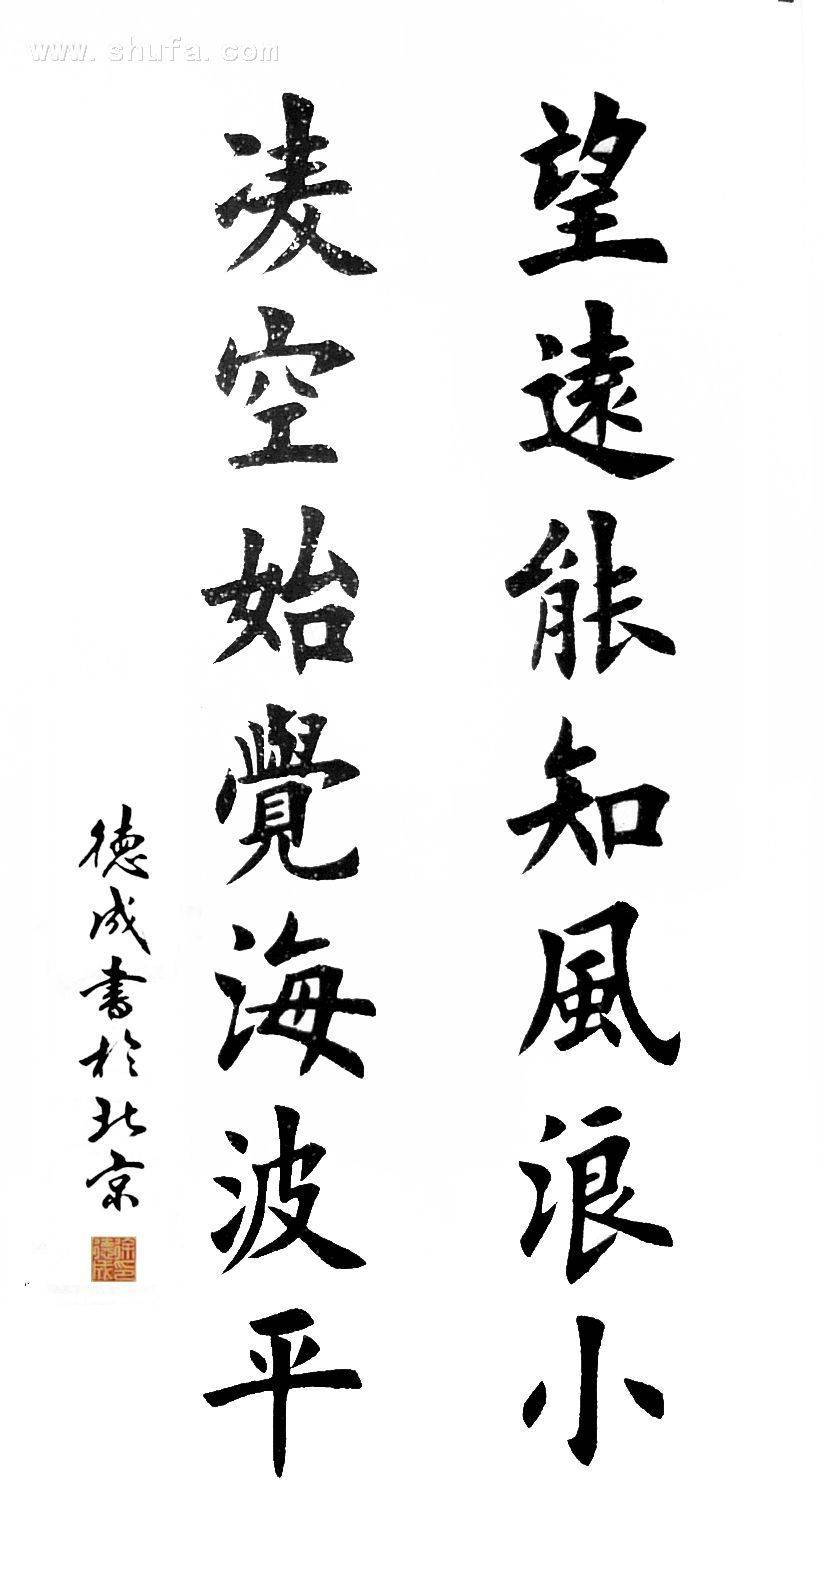 www.shufa.com
望遠能知風浪小
凌空始覺海波平
德成書於北京